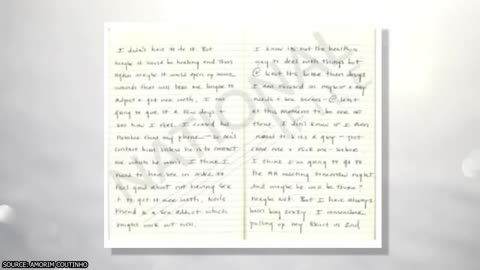 I didn't have to do it. But
maybe it would be healing and then
again maybe it would open up more
wounds that will take me longer to
adjust & get over with. I am
going to give it a few days &
see how I feel. I erased his
number from my phone - so can't
contact him unless he is to contact
me which he won't. I think I
need to have sex in order to
feel good about not having sex
& to get it over with.
friend is a sex addict which
might work out well.
I know its not the healthy
way to deal with things but
@ least its better than drugs
I am focused on myself & my
needs & am - @ least
at this moment to be one
there. I don't know if I even
need to b in a - just
one & one - before
I think I'm going to go to
the AA meeting tomorrow night
and maybe he will be there?
Maybe not. But I have always
been boy crazy. I remember
pulling up my skirt in 2nd
NATIONAL
SOURCE: AMORIM COUTINHO